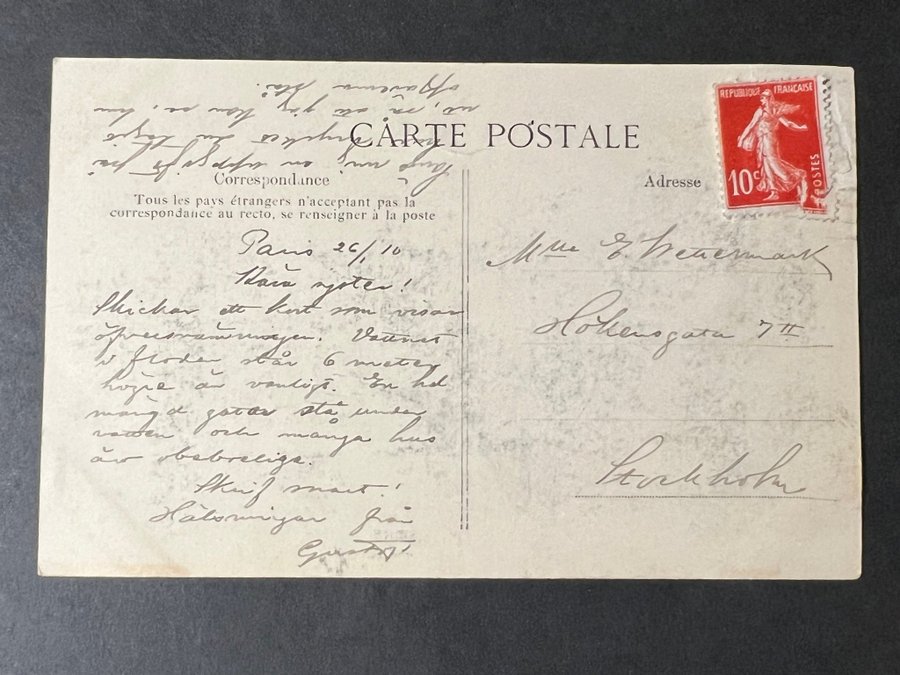 CARTE POSTALE
Correspondance
Tous les pays étrangers n'acceptent pas la
correspondance au recto, se renseigner à la poste
Paris 26/1 10
Kära syster!
Skickar ett kort som visar
öfversvämningen. Vattnet
i floden står 6 meter
högre än vanligt. En hel
mängd gator stå under
vatten och många hus
äro obeboeliga.
Skrif snart!
Hälsningar från
Gustaf
mig en uppgift på
mycket
Adresse
REPUBLIQUE FRANÇAISE
10c
POSTES
Mlle E. Wettermark
Hökensgata 7 II
Stockholm